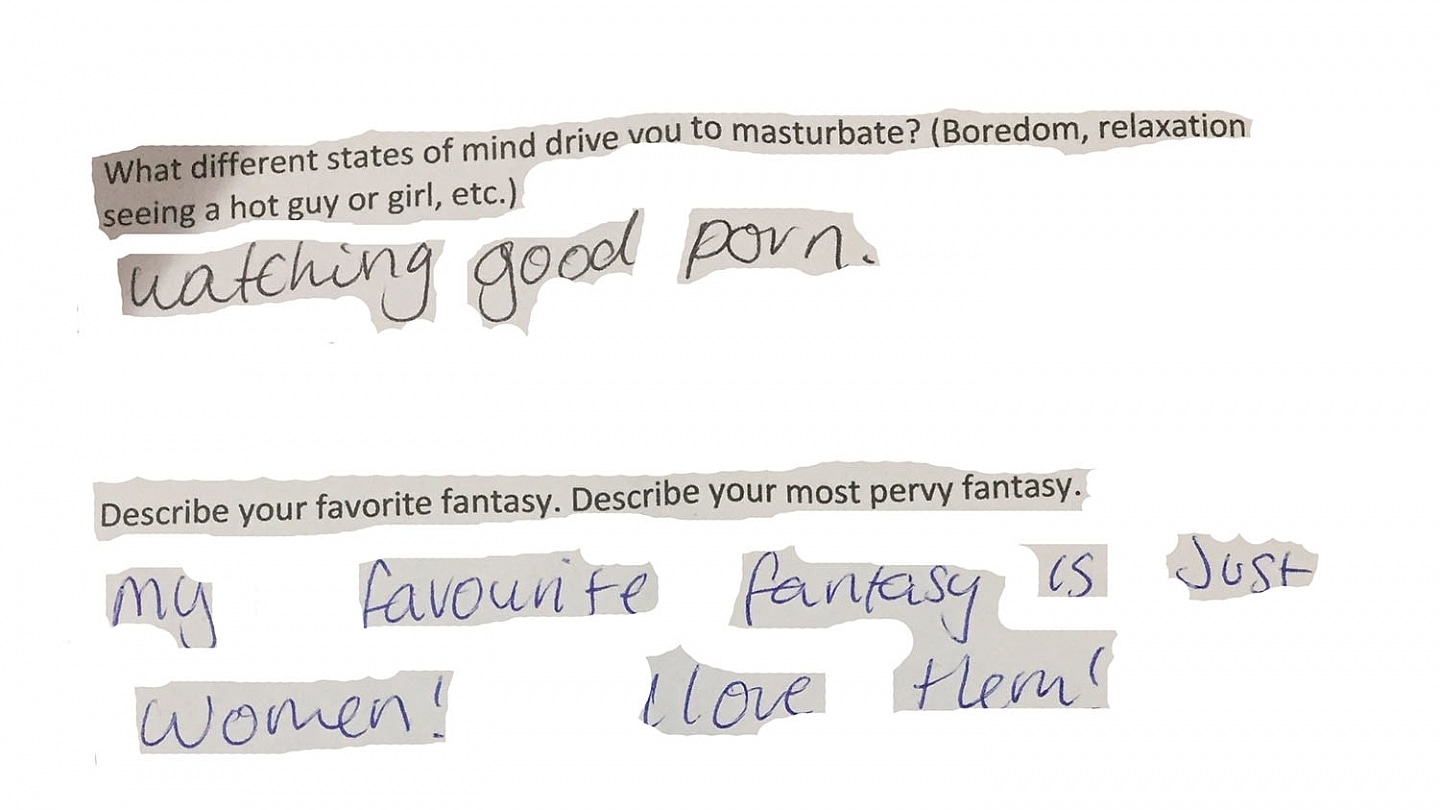 What different states of mind drive you to masturbate? (Boredom, relaxation
seeing a hot guy or girl, etc.)
watching good porn.
Describe your favorite fantasy. Describe your most pervy fantasy.
my favourite fantasy is Just
Women! I love them!